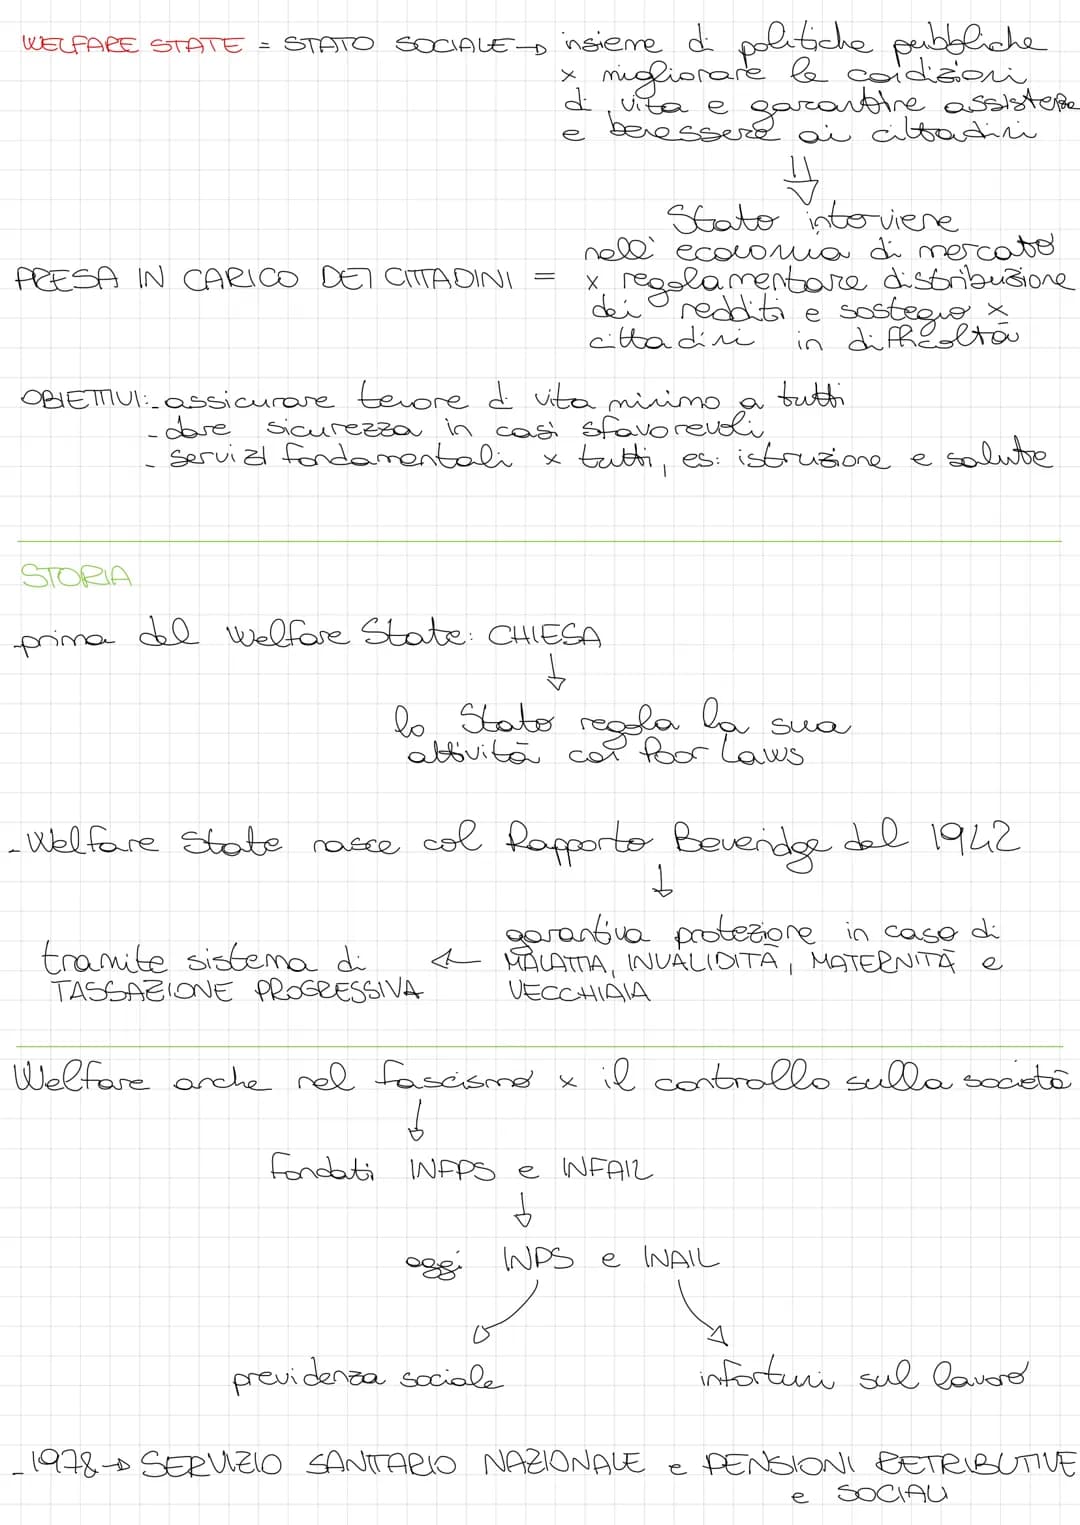 WELFARE STATE = STATO SOCIALE → insieme di politiche pubbliche
x migliorare le condizioni
di vita e garantire assistenza
e benessere ai cittadini
⇓
Stato interviene
nell' economia di mercato
PRESA IN CARICO DEI CITTADINI = x regolamentare distribuzione
dei redditi e sostegno x
cittadini in difficoltà
OBIETTIVI: - assicurare tenore di vita minimo a tutti
- dare sicurezza in casi sfavorevoli
- servizi fondamentali x tutti, es: istruzione e salute
STORIA
prima del Welfare State: CHIESA
↓
lo Stato regola la sua
attività coi Poor Laws
- Welfare State nasce col Rapporto Beveridge del 1942
↓
garantiva protezione in caso di
tramite sistema di ← MALATTIA, INVALIDITÀ, MATERNITÀ e
TASSAZIONE PROGRESSIVA VECCHIAIA
Welfare anche nel fascismo x il controllo sulla società
↓
fondati INFPS e INFAIL
↓
oggi INPS e INAIL
previdenza sociale infortuni sul lavoro
- 1978 → SERVIZIO SANITARIO NAZIONALE e PENSIONI RETRIBUTIVE
e SOCIALI